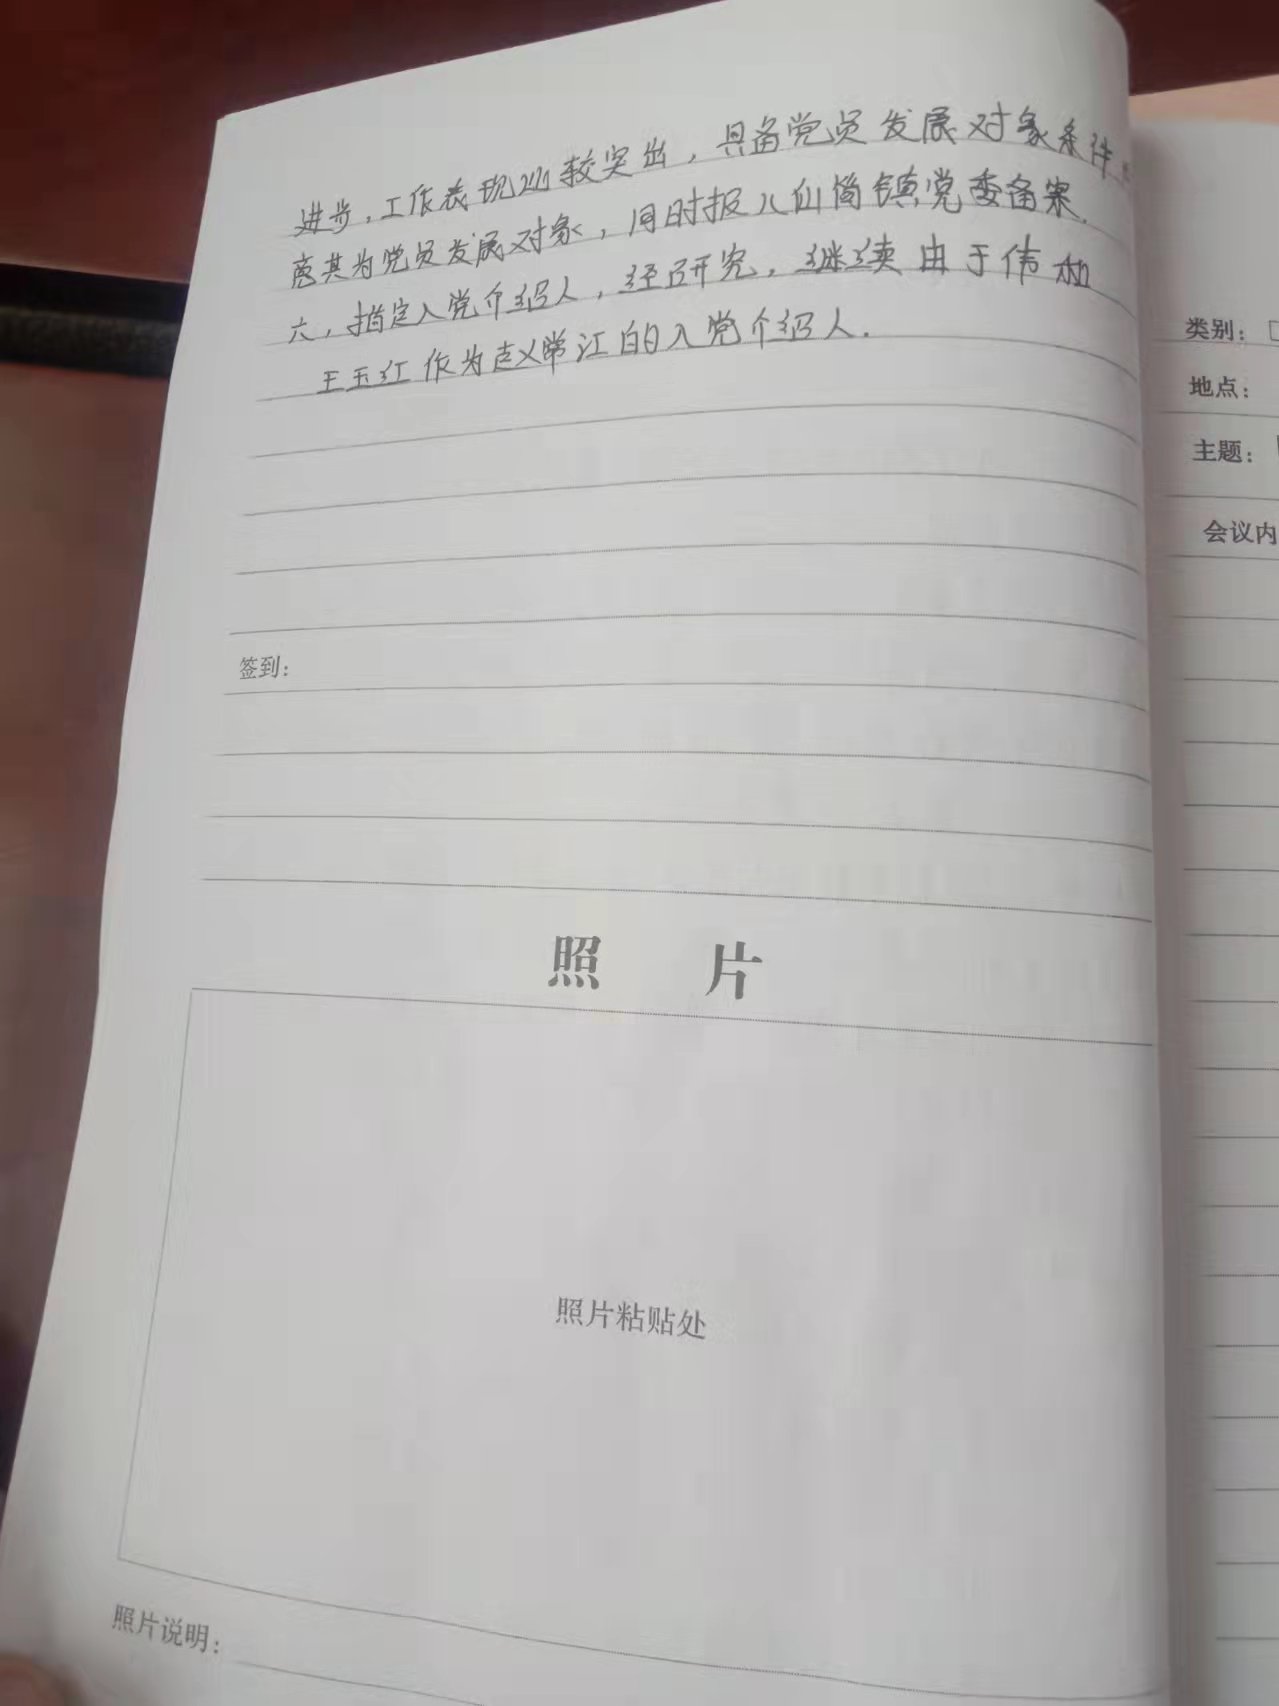 进步，工作表现比较突出，具备党员发展对象条件
离其为党员发展对象，同时报八仙筒镇党委备案．
六，指定入党介绍人，经研究，继续由于伟和
王玉红作为赵常江的入党介绍人．
签到：
照 片
照片粘贴处
照片说明：
类别：
地点：
主题：
会议内